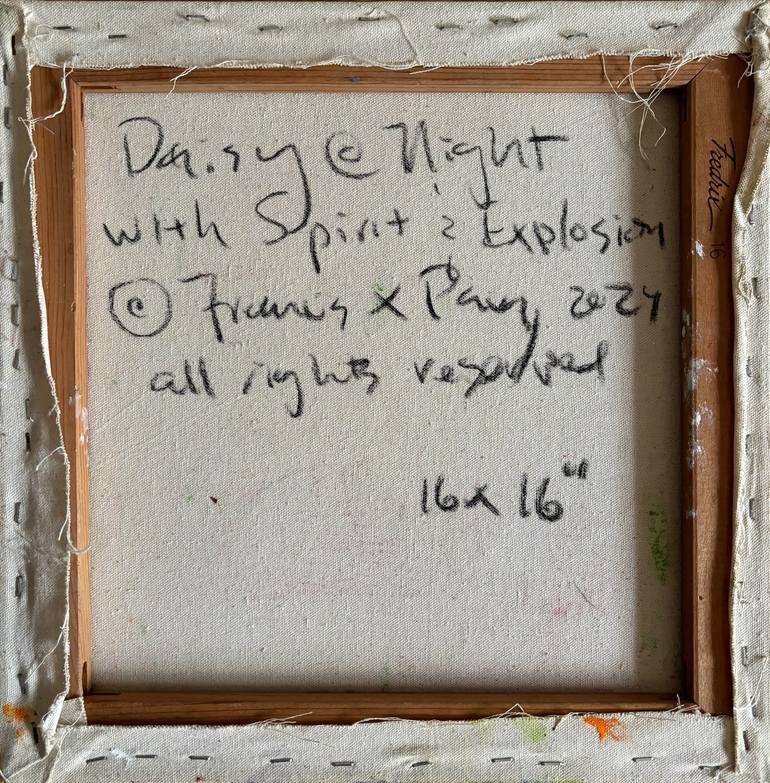 Daisy @ Night
with Spirit & Explosion
© Francis X Pavy 2024
all rights reserved
16 x 16"
Fredrix 16